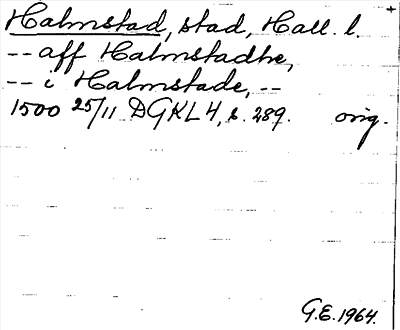 Halmstad, stad, Hall. l.
-- aff Halmstadhe,
-- i Halmstade, --
1500 25/11 DGKL 4, s. 289. orig.
G.E. 1964.